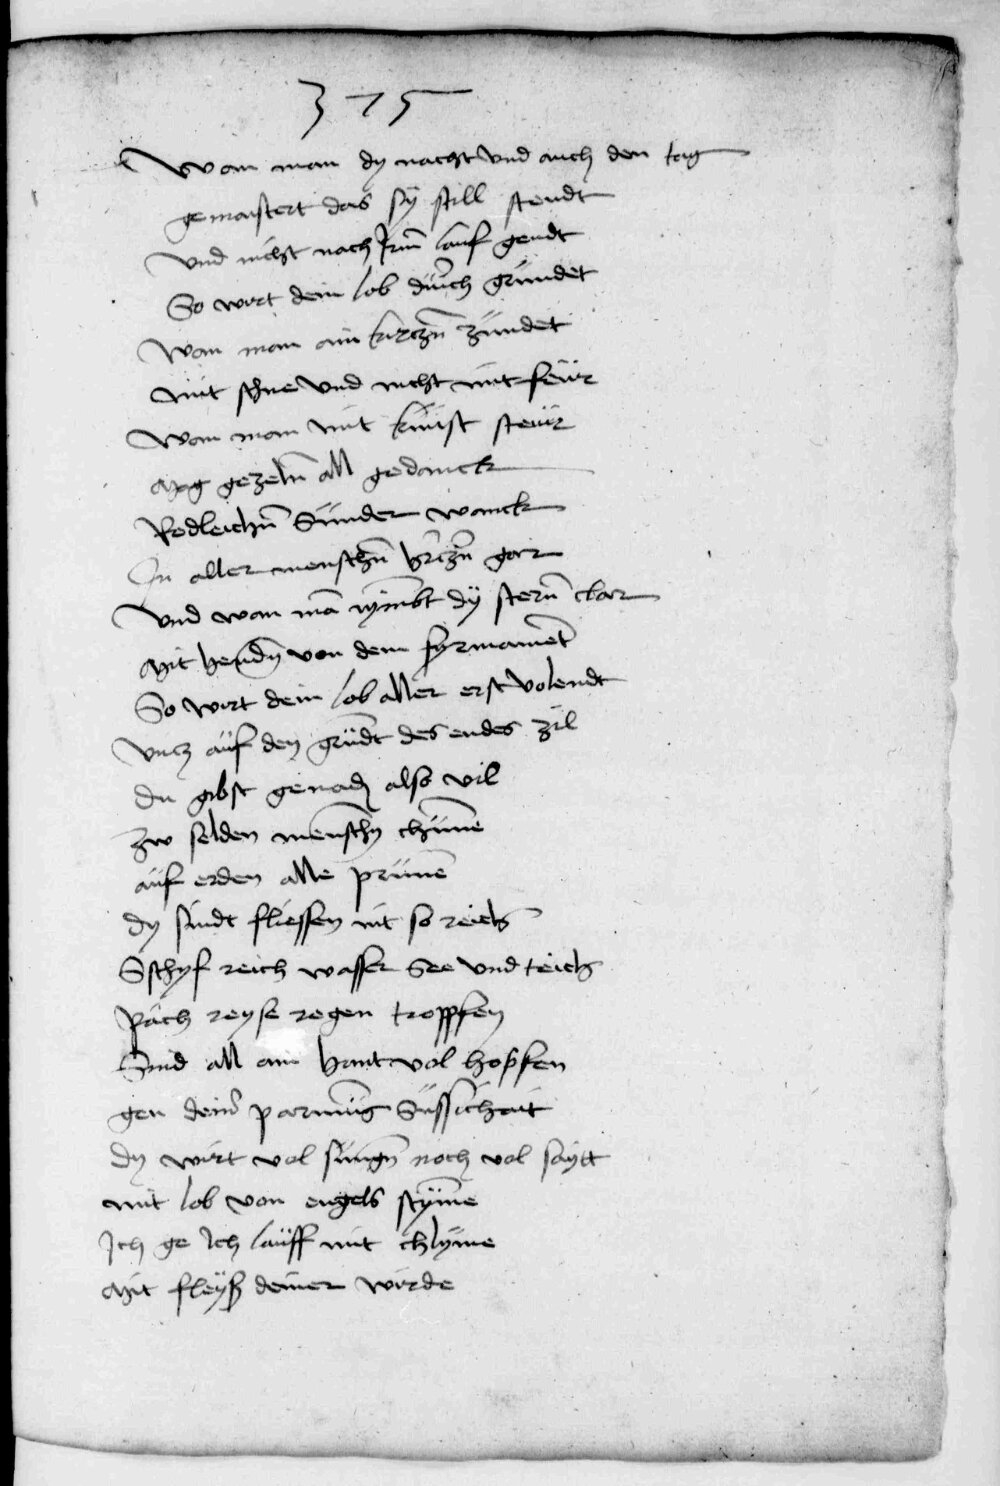 375
Wan man dy nacht vnd auch den tag
gemaistert das sÿ still stendt
vnd nicht nach irm̄ lauf gendt
So wirt dein lob durch gründet
Wan man ain kirczn̄ zündet
mit schne vnd nicht mit feür
Wan man mit künst steür
Mag gezeln̄ all gedanck
Redleichn̄ Sünder wanck
In aller menschn̄ herczn̄ gar
vnd wan mā nÿmbt dÿ stern̄ clar
Mit hendn̄ von dem fyrmamēt
So wirt dein lob aller erst volendt
vncz auf den grūdt des endes zil
du gibst genadn̄ also vil
zw selden menschn̄ chūme
auf erden alle prünē
dy sindt fliessen nit so reich
Schyf reich wasser See vnd teich
Päch reyse regen tropffen
Sind all ain hant vol hopfen
gen deinr̄ parmūg Süssichait
dy wirt vol sungn̄ noch vol saytt
mit lob von engels stÿme
Ich ge Ich lauff mit chlyme
Mit fleyß deiner wirde